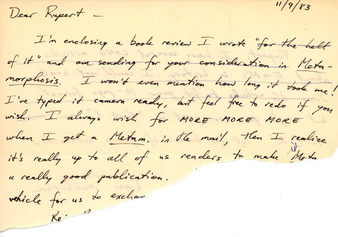 11/9/83
Dear Rupert —
I'm enclosing a book review I wrote "for the hell
of it" and am sending for your consideration in Meta-
morphosis. I won't even mention how long it took me!
I've typed it camera ready, but feel free to redo if you
wish. I always wish for MORE MORE MORE
when I get a Metam. in the mail, then I realize
it's really up to all of us readers to make Meta
a really good publication.
vehicle for us to exchan